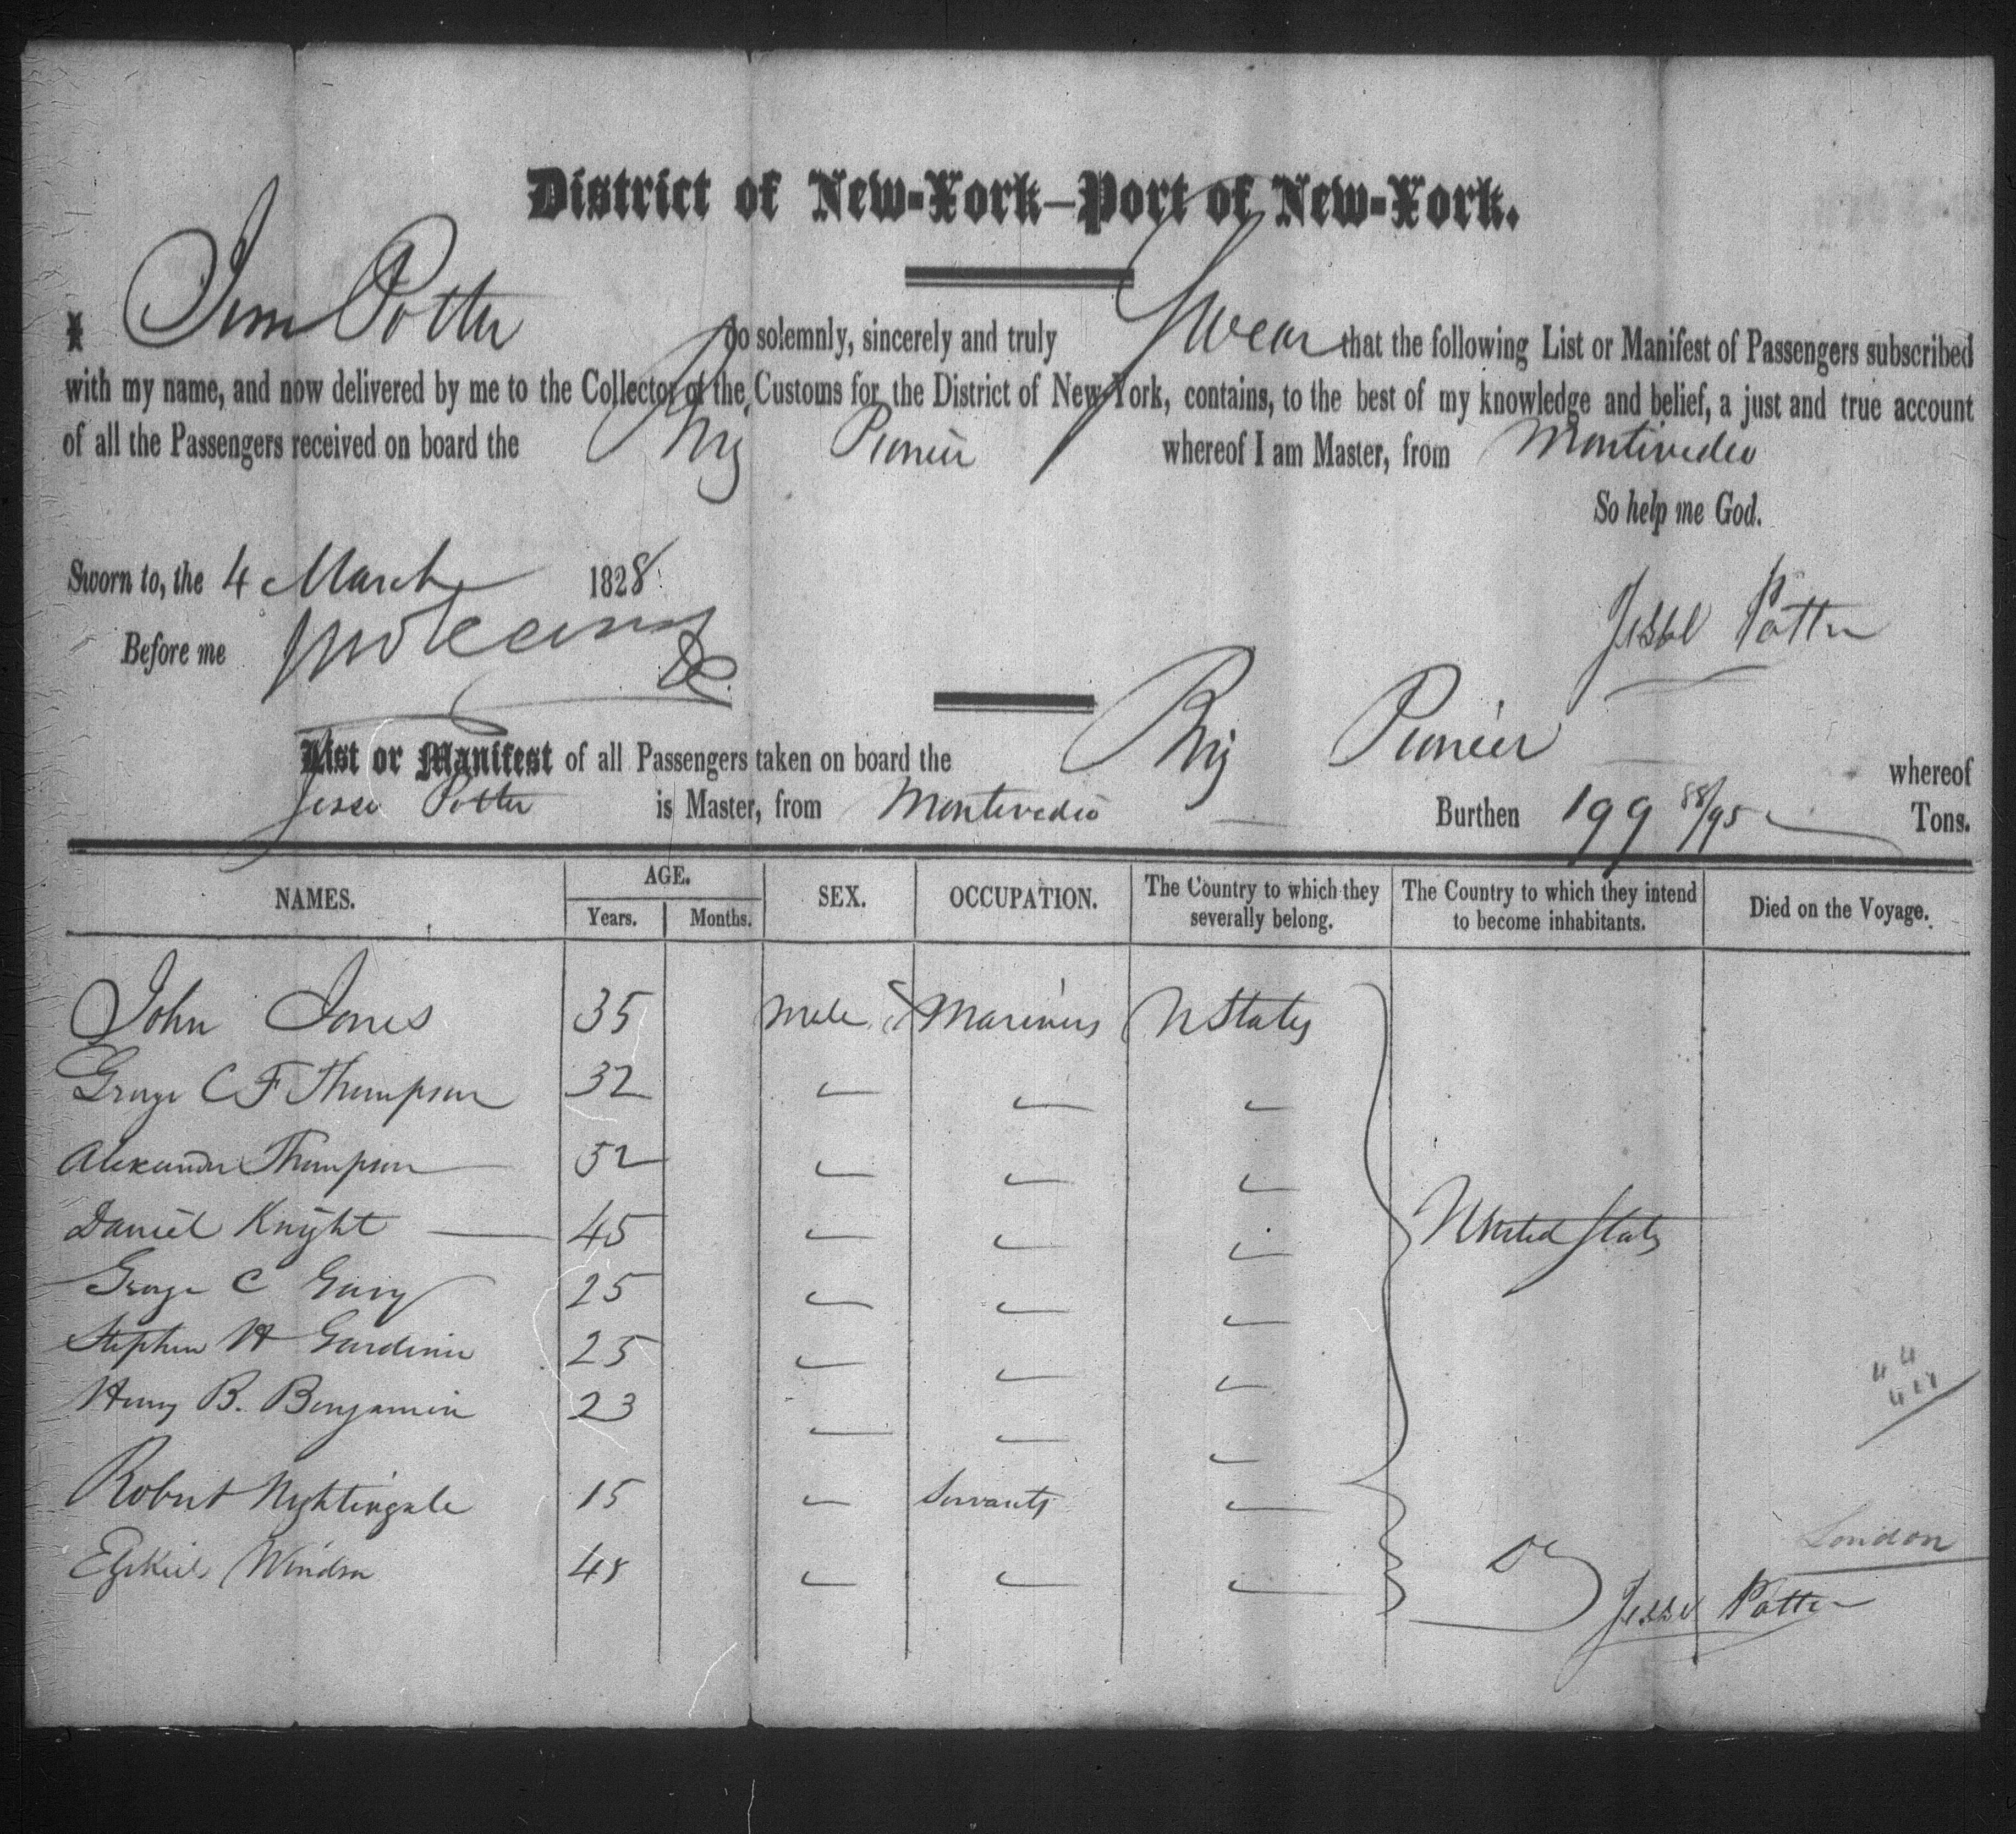 District of New-York—Port of New-York.
I Jesse Potter do solemnly, sincerely and truly Swear that the following List or Manifest of Passengers subscribed
with my name, and now delivered by me to the Collector of the Customs for the District of New-York, contains, to the best of my knowledge and belief, a just and true account
of all the Passengers received on board the Brig Pioneer whereof I am Master, from Montivedeo
So help me God.
Sworn to, the 4 March 1828
Before me
Jesse Potter
List or Manifest of all Passengers taken on board the Brig Pioneer whereof
Jesse Potter is Master, from Montevedeo Burthen 199 88/95 Tons.
NAMES. AGE. SEX. OCCUPATION. The Country to which they severally belong. The Country to which they intend to become inhabitants. Died on the Voyage.
Years. Months.
John Jones 35 Male Mariners U States
George C F Thompson 32
Alexander Thompson 52
Daniel Knight 45 United States
George C 25
Stephen H Gardiner 25
Henry B. Benjamin 23
Robert Nightingale 15 Servants
London
Ezekiel Windsor 48 Do
Jesse Potter